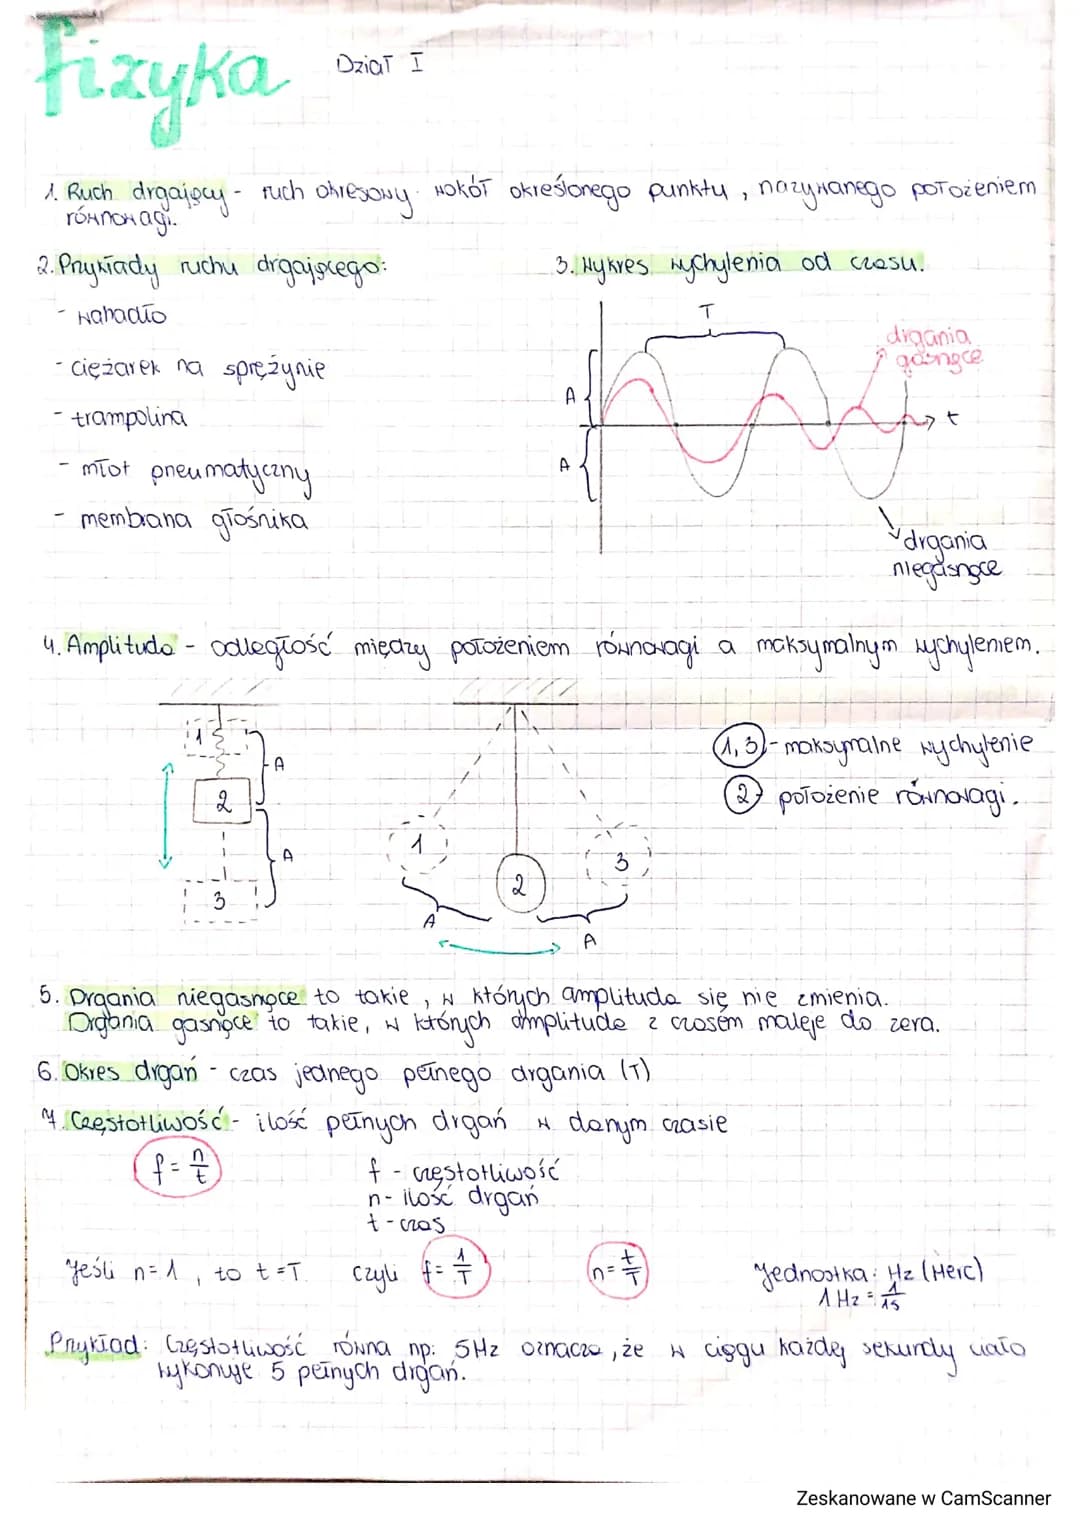 fizyka
Dział I
1. Ruch drgający - ruch okresowy wokół określonego punktu, nazywanego położeniem
równowagi.
2. Przykłady ruchu drgającego:
- wahadło
- ciężarek na sprężynie
- trampolina
- młot pneumatyczny
- membrana głośnika
3. Wykres wychylenia od czasu.
T
drgania
gasnące
A
t
A
drgania
niegasnące
4. Amplituda - odległość między położeniem równowagi a maksymalnym wychyleniem.
1
A
2
A
3
1
2
3
A
A
1, 3 - maksymalne wychylenie
2 - położenie równowagi.
5. Drgania niegasnące to takie, w których amplituda się nie zmienia.
Drgania gasnące to takie, w których amplituda z czasem maleje do zera.
6. Okres drgań - czas jednego pełnego drgania (T)
7. Częstotliwość - ilość pełnych drgań w danym czasie
f = n/t
f - częstotliwość
n - ilość drgań
t - czas
Jeśli n = 1, to t = T. czyli f = 1/T n = t/T Jednostka: Hz (Herc)
1 Hz = 1/1s
Przykład: Częstotliwość równa np: 5Hz oznacza, że w ciągu każdej sekundy ciało
wykonuje 5 pełnych drgań.
Zeskanowane w CamScanner